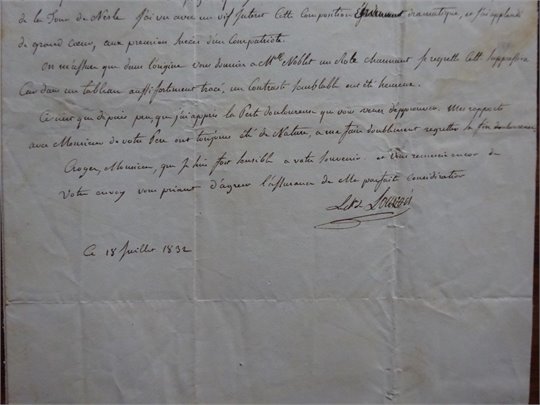 de la Tour de Nesle j'ai vu avec un vif interet cette Composition dramatique, et j'ai applaudi
de grand Cœur, aux premiers succès d'un Compatriote.
on m'assure que dans l'origine vous donniez a Mlle Noblet un Role charmant je regrette cette suppression
Car dans un tableau aussi fortement tracé, un Contraste semblable eut été heureux.
Ce n'est que depuis peu, que j'ai appris la Perte douloureuse que vous venez d'éprouver. Mes rapports
avec Monsieur de votre Pere ont toujours été de Nature, a me faire doublement regretter sa fin douloureuse,
Croyez, Monsieur, que je suis fort sensible a votre Souvenir et vous remercie encor de
votre envoy vous priant d'agréer l'assurance de Ma parfaite Considération
Ce 18 Juillet 1832